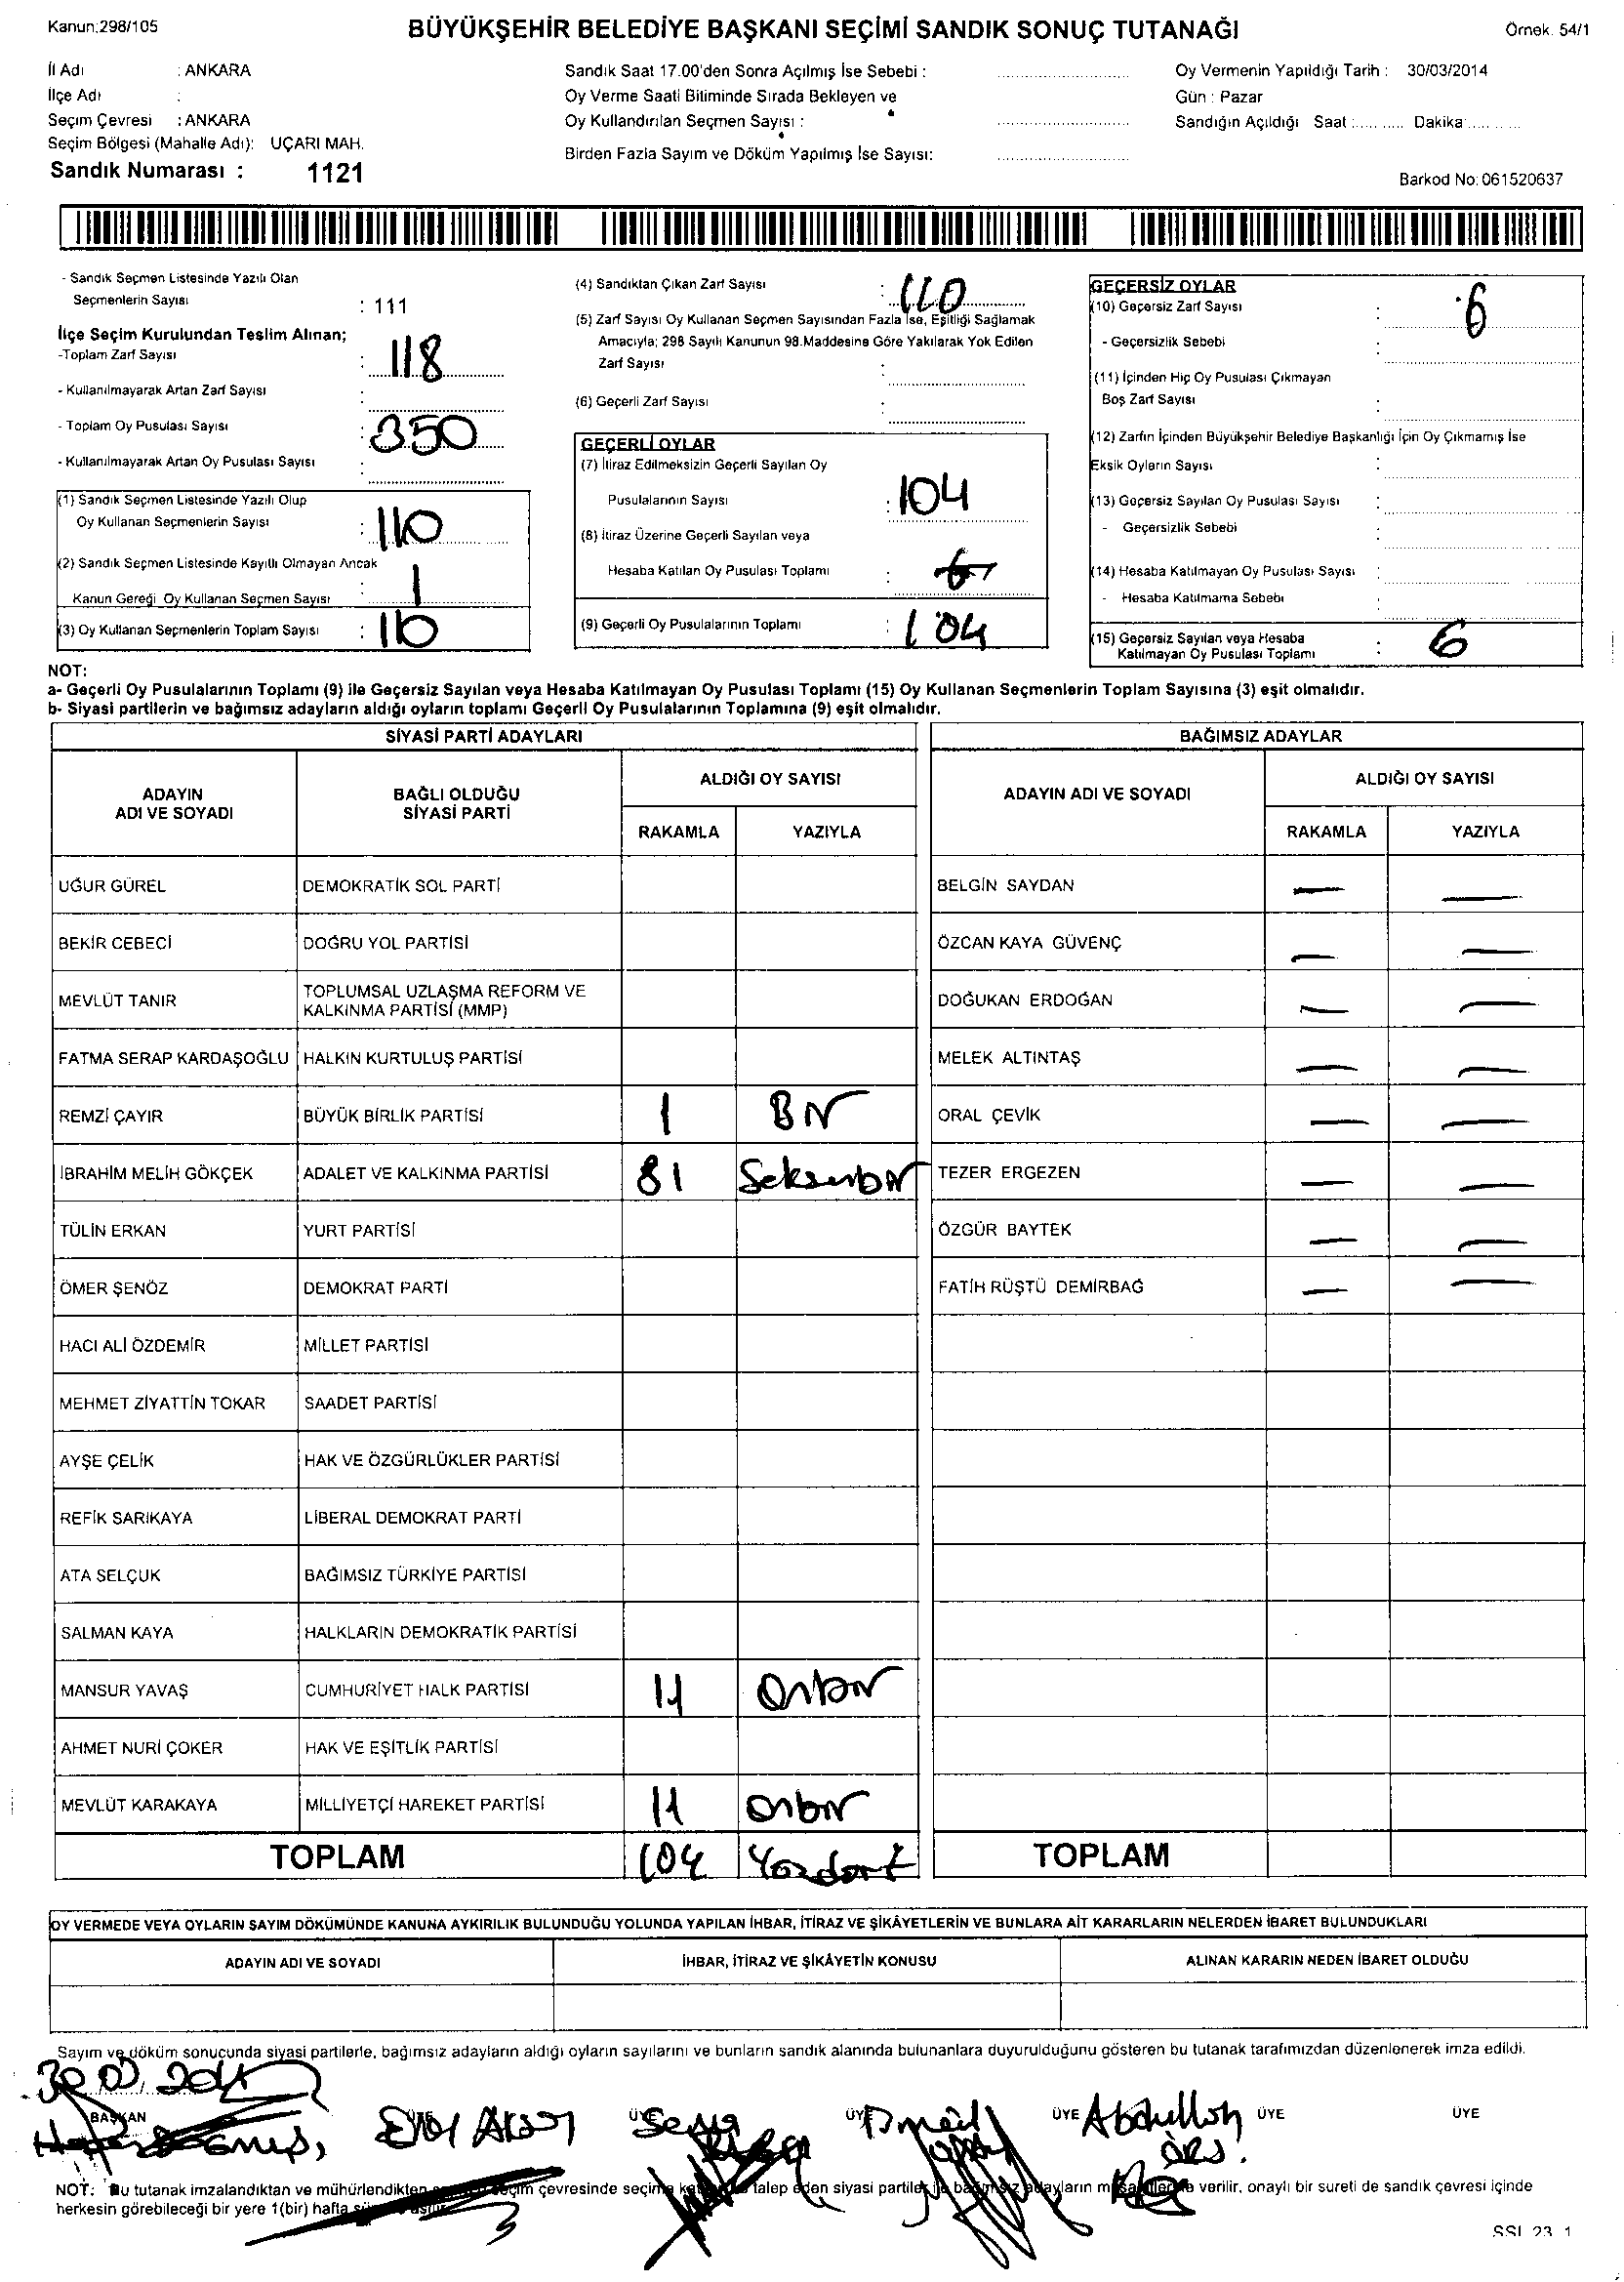 Kanun:298/105
BÜYÜKŞEHİR BELEDİYE BAŞKANI SEÇİMİ SANDIK SONUÇ TUTANAĞI
Örnek. 54/1
İl Adı : ANKARA
İlçe Adı :
Seçim Çevresi : ANKARA
Seçim Bölgesi (Mahalle Adı): UÇARI MAH.
Sandık Numarası : 1121
Sandık Saat 17.00'den Sonra Açılmış İse Sebebi :
Oy Verme Saati Bitiminde Sırada Bekleyen ve
Oy Kullandırılan Seçmen Sayısı :
Birden Fazla Sayım ve Döküm Yapılmış İse Sayısı:
Oy Vermenin Yapıldığı Tarih : 30/03/2014
Gün : Pazar
Sandığın Açıldığı Saat :......... Dakika:.........
Barkod No: 061520637
- Sandık Seçmen Listesinde Yazılı Olan
Seçmenlerin Sayısı : 111
İlçe Seçim Kurulundan Teslim Alınan;
-Toplam Zarf Sayısı : 118
- Kullanılmayarak Artan Zarf Sayısı :
- Toplam Oy Pusulası Sayısı : 350
- Kullanılmayarak Artan Oy Pusulası Sayısı :
(1) Sandık Seçmen Listesinde Yazılı Olup
Oy Kullanan Seçmenlerin Sayısı : 110
(2) Sandık Seçmen Listesinde Kayıtlı Olmayan Ancak
Kanun Gereği Oy Kullanan Seçmen Sayısı : 1
(3) Oy Kullanan Seçmenlerin Toplam Sayısı : 110
(4) Sandıktan Çıkan Zarf Sayısı : 110
(5) Zarf Sayısı Oy Kullanan Seçmen Sayısından Fazla İse, Eşitliği Sağlamak
Amacıyla; 298 Sayılı Kanunun 98.Maddesine Göre Yakılarak Yok Edilen
Zarf Sayısı :
(6) Geçerli Zarf Sayısı :
GEÇERLİ OYLAR
(7) İtiraz Edilmeksizin Geçerli Sayılan Oy
Pusulalarının Sayısı : 104
(8) İtiraz Üzerine Geçerli Sayılan veya
Hesaba Katılan Oy Pusulası Toplamı :
(9) Geçerli Oy Pusulalarının Toplamı : 104
GEÇERSİZ OYLAR
(10) Geçersiz Zarf Sayısı : 6
- Geçersizlik Sebebi :
(11) İçinden Hiç Oy Pusulası Çıkmayan
Boş Zarf Sayısı :
(12) Zarfın İçinden Büyükşehir Belediye Başkanlığı İçin Oy Çıkmamış İse
Eksik Oyların Sayısı :
(13) Geçersiz Sayılan Oy Pusulası Sayısı :
- Geçersizlik Sebebi
(14) Hesaba Katılmayan Oy Pusulası Sayısı :
- Hesaba Katılmama Sebebi :
(15) Geçersiz Sayılan veya Hesaba
Katılmayan Oy Pusulası Toplamı : 6
NOT:
a- Geçerli Oy Pusulalarının Toplamı (9) ile Geçersiz Sayılan veya Hesaba Katılmayan Oy Pusulası Toplamı (15) Oy Kullanan Seçmenlerin Toplam Sayısına (3) eşit olmalıdır.
b- Siyasi partilerin ve bağımsız adayların aldığı oyların toplamı Geçerli Oy Pusulalarının Toplamına (9) eşit olmalıdır.
SİYASİ PARTİ ADAYLARI
ADAYIN ADI VE SOYADI
BAĞLI OLDUĞU SİYASİ PARTİ
ALDIĞI OY SAYISI
RAKAMLA YAZIYLA
UĞUR GÜREL DEMOKRATİK SOL PARTİ
BEKİR CEBECİ DOĞRU YOL PARTİSİ
MEVLÜT TANIR TOPLUMSAL UZLAŞMA REFORM VE
KALKINMA PARTİSİ (MMP)
FATMA SERAP KARDAŞOĞLU HALKIN KURTULUŞ PARTİSİ
REMZİ ÇAYIR BÜYÜK BİRLİK PARTİSİ 1 Bir
İBRAHİM MELİH GÖKÇEK ADALET VE KALKINMA PARTİSİ 81 Seksenbir
TÜLİN ERKAN YURT PARTİSİ
ÖMER ŞENÖZ DEMOKRAT PARTİ
HACI ALİ ÖZDEMİR MİLLET PARTİSİ
MEHMET ZİYATTİN TOKAR SAADET PARTİSİ
AYŞE ÇELİK HAK VE ÖZGÜRLÜKLER PARTİSİ
REFİK SARIKAYA LİBERAL DEMOKRAT PARTİ
ATA SELÇUK BAĞIMSIZ TÜRKİYE PARTİSİ
SALMAN KAYA HALKLARIN DEMOKRATİK PARTİSİ
MANSUR YAVAŞ CUMHURİYET HALK PARTİSİ 11 Onbir
AHMET NURİ ÇOKER HAK VE EŞİTLİK PARTİSİ
MEVLÜT KARAKAYA MİLLİYETÇİ HAREKET PARTİSİ 11 Onbir
TOPLAM 104 Yüzdört
BAĞIMSIZ ADAYLAR
ADAYIN ADI VE SOYADI
ALDIĞI OY SAYISI
RAKAMLA YAZIYLA
BELGİN SAYDAN — —
ÖZCAN KAYA GÜVENÇ — —
DOĞUKAN ERDOĞAN — —
MELEK ALTINTAŞ — —
ORAL ÇEVİK — —
TEZER ERGEZEN — —
ÖZGÜR BAYTEK — —
FATİH RÜŞTÜ DEMİRBAĞ — —
TOPLAM
OY VERMEDE VEYA OYLARIN SAYIM DÖKÜMÜNDE KANUNA AYKIRILIK BULUNDUĞU YOLUNDA YAPILAN İHBAR, İTİRAZ VE ŞİKÂYETLERİN VE BUNLARA AİT KARARLARIN NELERDEN İBARET BULUNDUKLARI
ADAYIN ADI VE SOYADI İHBAR, İTİRAZ VE ŞİKÂYETİN KONUSU ALINAN KARARIN NEDEN İBARET OLDUĞU
Sayım ve döküm sonucunda siyasi partilerle, bağımsız adayların aldığı oyların sayılarını ve bunların sandık alanında bulunanlara duyurulduğunu gösteren bu tutanak tarafımızdan düzenlenerek imza edildi.
BAŞKAN ÜYE ÜYE ÜYE ÜYE ÜYE ÜYE
Abdullah
NOT: Bu tutanak imzalandıktan ve mühürlendikten seçim çevresinde seçime talep eden siyasi partiler verilir, onaylı bir sureti de sandık çevresi içinde
herkesin görebileceği bir yere 1(bir) hafta
SSI 23 1